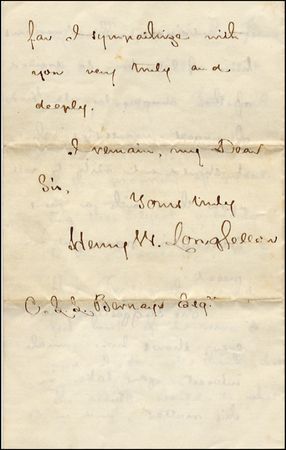 far I sympathize with
you very truly and
deeply.
I remain, my Dear
Sir,
Yours truly
Henry W. Longfellow
C. L. Bernays Esqr